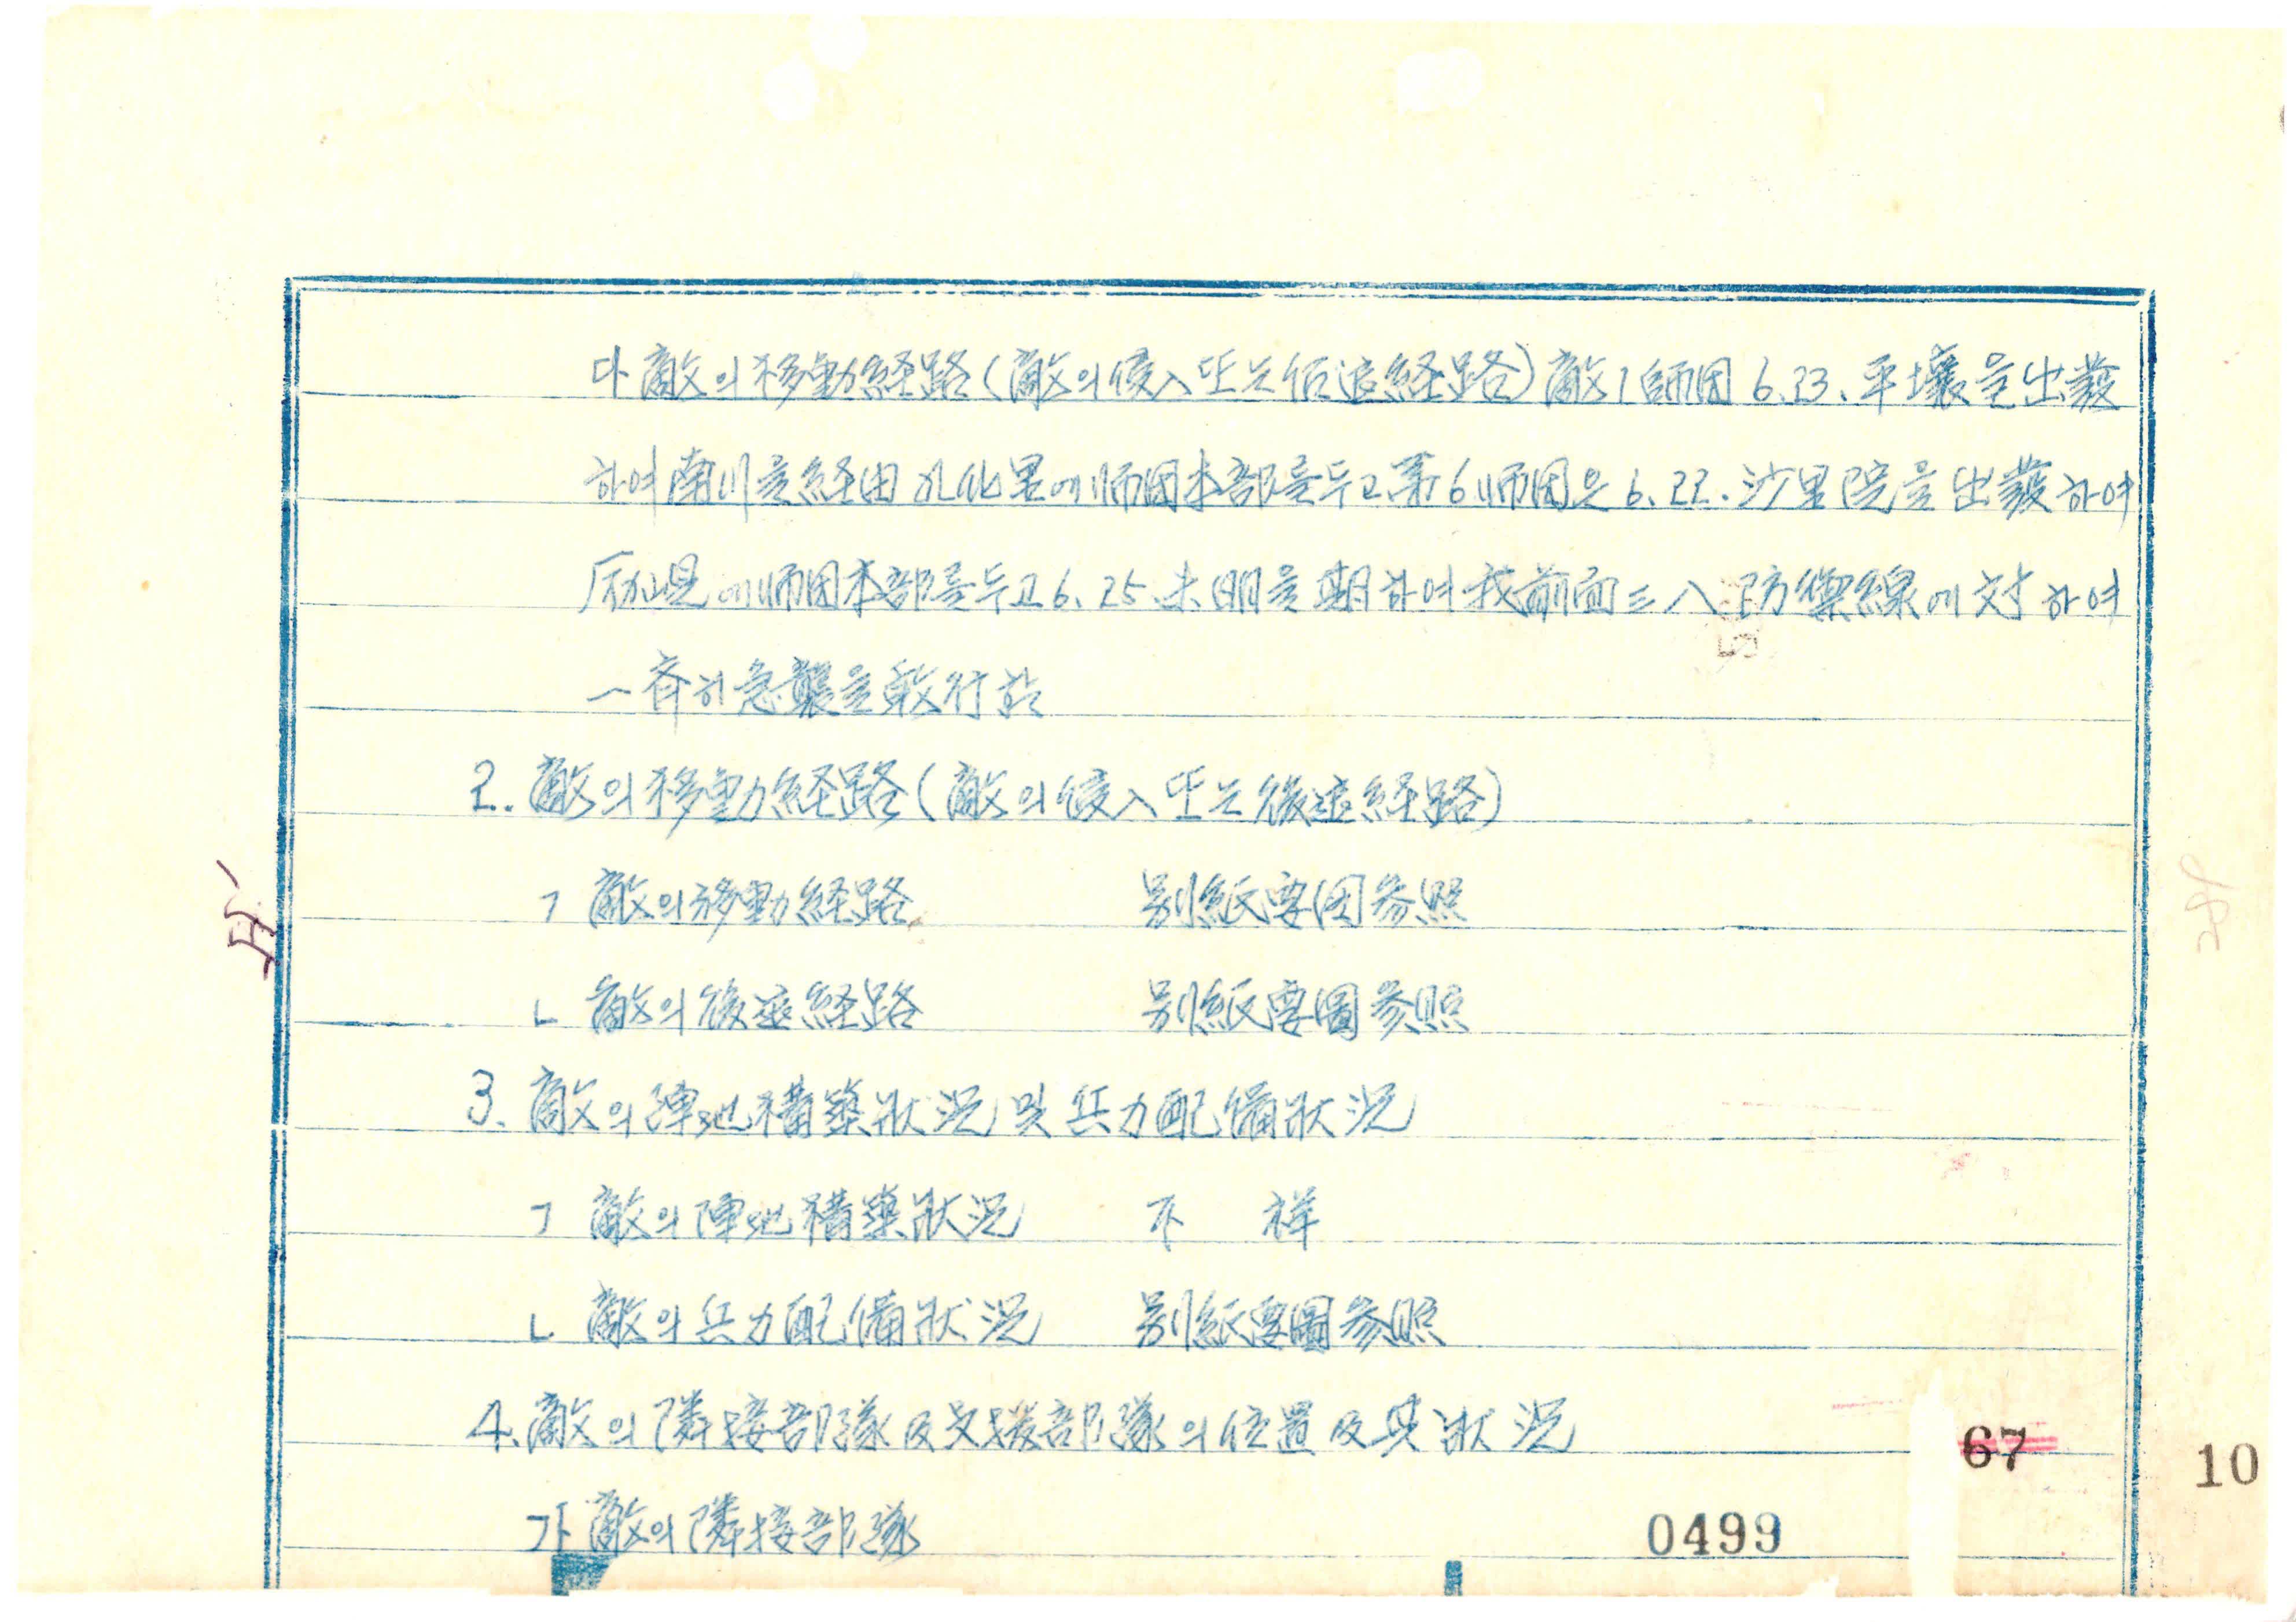 다 敵의 移動経路(敵의 侵入 또는 后退経路) 敵 1師団 6.23. 平壤을 出發
하여 南川을 経由 九化里에 師団本部를 두고 第6師団은 6.22. 沙里院을 出發하여
에 師団本部를 두고 6.25. 未明을 期하여 我前面 三八 防禦線에 対하여
一斉히 急襲을 敢行함
2. 敵의 移動経路(敵의 侵入 또는 後退経路)
ㄱ 敵의 移動経路 別紙要図参照
ㄴ 敵의 後退経路 別紙要圖参照
3. 敵의 陣地構築狀況 및 兵力配備狀況
ㄱ 敵의 陣地構築狀況 不 祥
ㄴ 敵의 兵力配備狀況 別紙要圖参照
4. 敵의 隣接部隊 及 支援部隊의 位置 及 其 狀況
가 敵의 隣接部隊
67
10
0499